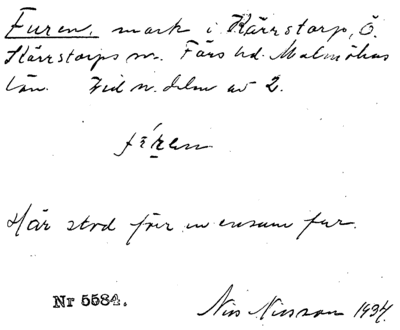 Furen, mark i Kärrstorp, Ö.
Kärrstorps sn. Färs hd. Malmöhus
län. Vid n. delen av 2.
Här stod förr en ensam fur.
Nr 5584.
Nils Nilsson 1927.